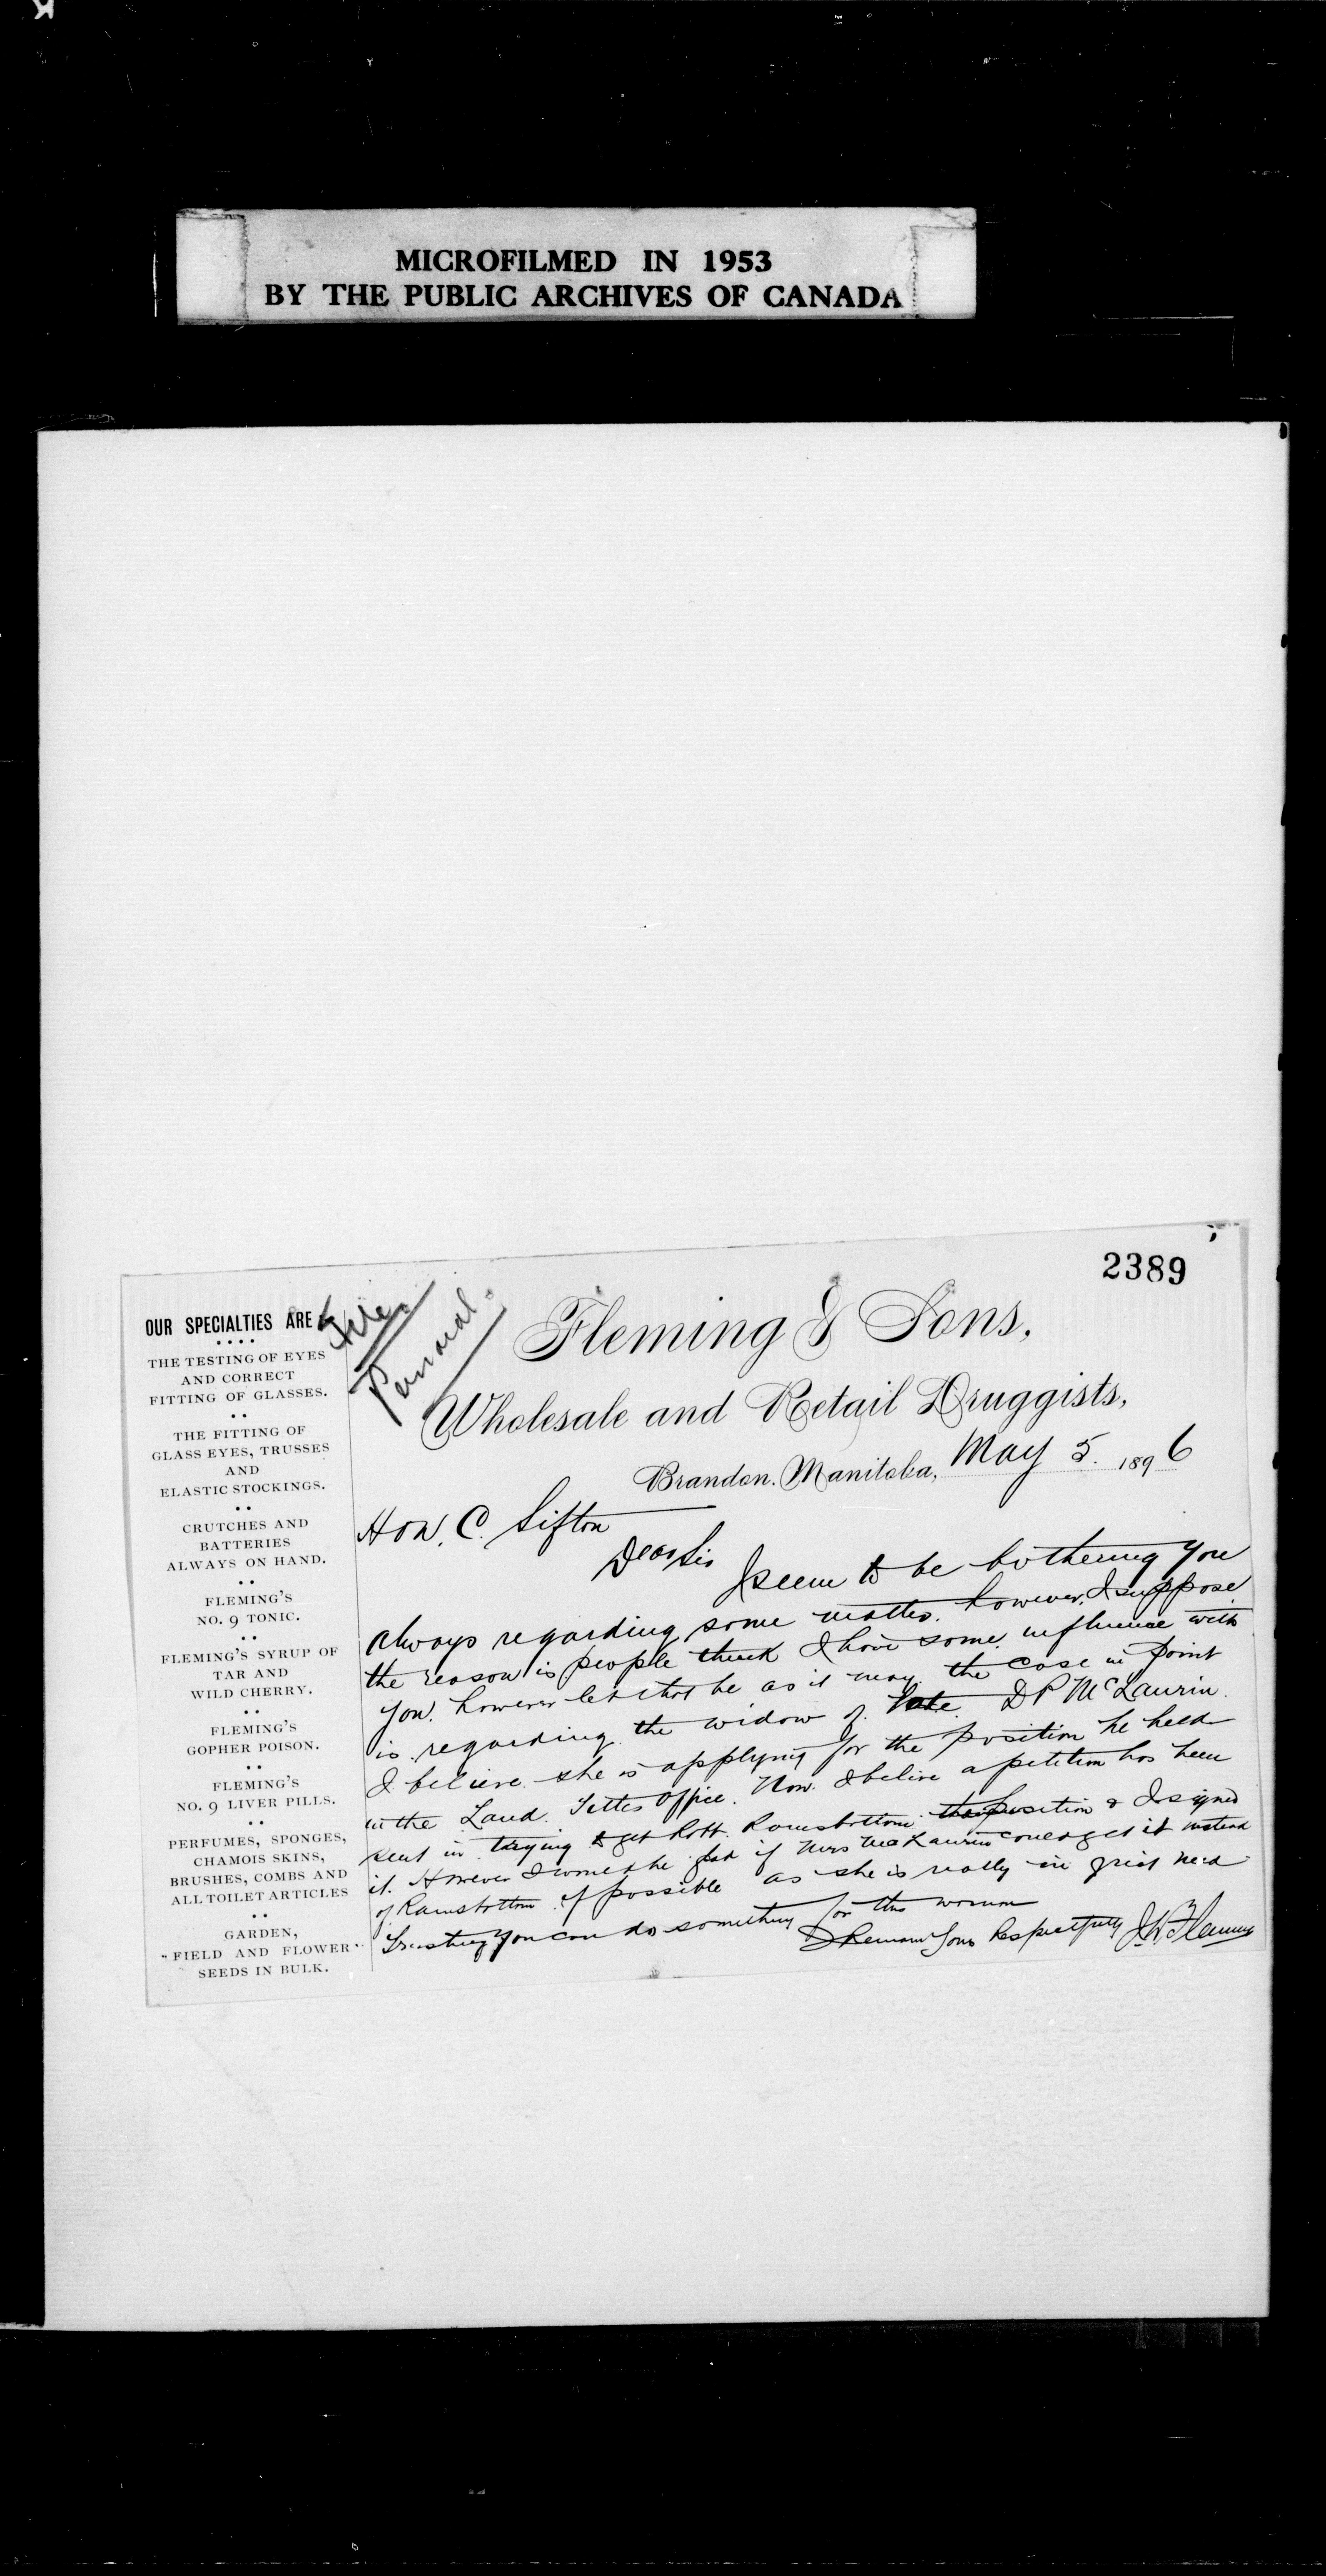 MICROFILMED IN 1953
BY THE PUBLIC ARCHIVES OF CANADA
2389
File.
Personal.
OUR SPECIALTIES ARE
THE TESTING OF EYES
AND CORRECT
FITTING OF GLASSES.
THE FITTING OF
GLASS EYES, TRUSSES
AND
ELASTIC STOCKINGS.
CRUTCHES AND
BATTERIES
ALWAYS ON HAND.
FLEMING'S
NO. 9 TONIC.
FLEMING'S SYRUP OF
TAR AND
WILD CHERRY.
FLEMING'S
GOPHER POISON.
FLEMING'S
NO. 9 LIVER PILLS.
PERFUMES, SPONGES,
CHAMOIS SKINS,
BRUSHES, COMBS AND
ALL TOILET ARTICLES
GARDEN,
FIELD AND FLOWER
SEEDS IN BULK.
Fleming & Sons,
Wholesale and Retail Druggists,
Brandon, Manitoba, May 5. 1896
Hon. C. Sifton
Dear Sir
I seem to be bothering you
always regarding some matter. however, I suppose
the reason is people think I have some influence with
you. however let that be as it may the case in point
is regarding the widow of late D P McLaurin.
I believe she is applying for the position he held
in the Land Tittes Office. Now I belive a petition has been
sent in trying to get Robt. Ramsbottom the position & I signed
it. However I would be glad if Mrs McLaurin could get it instead
of Ramsbottom if possible as she is really in great need
Trusting you can do something for this woman
I Remain Yours Respectfully J. W. Fleming